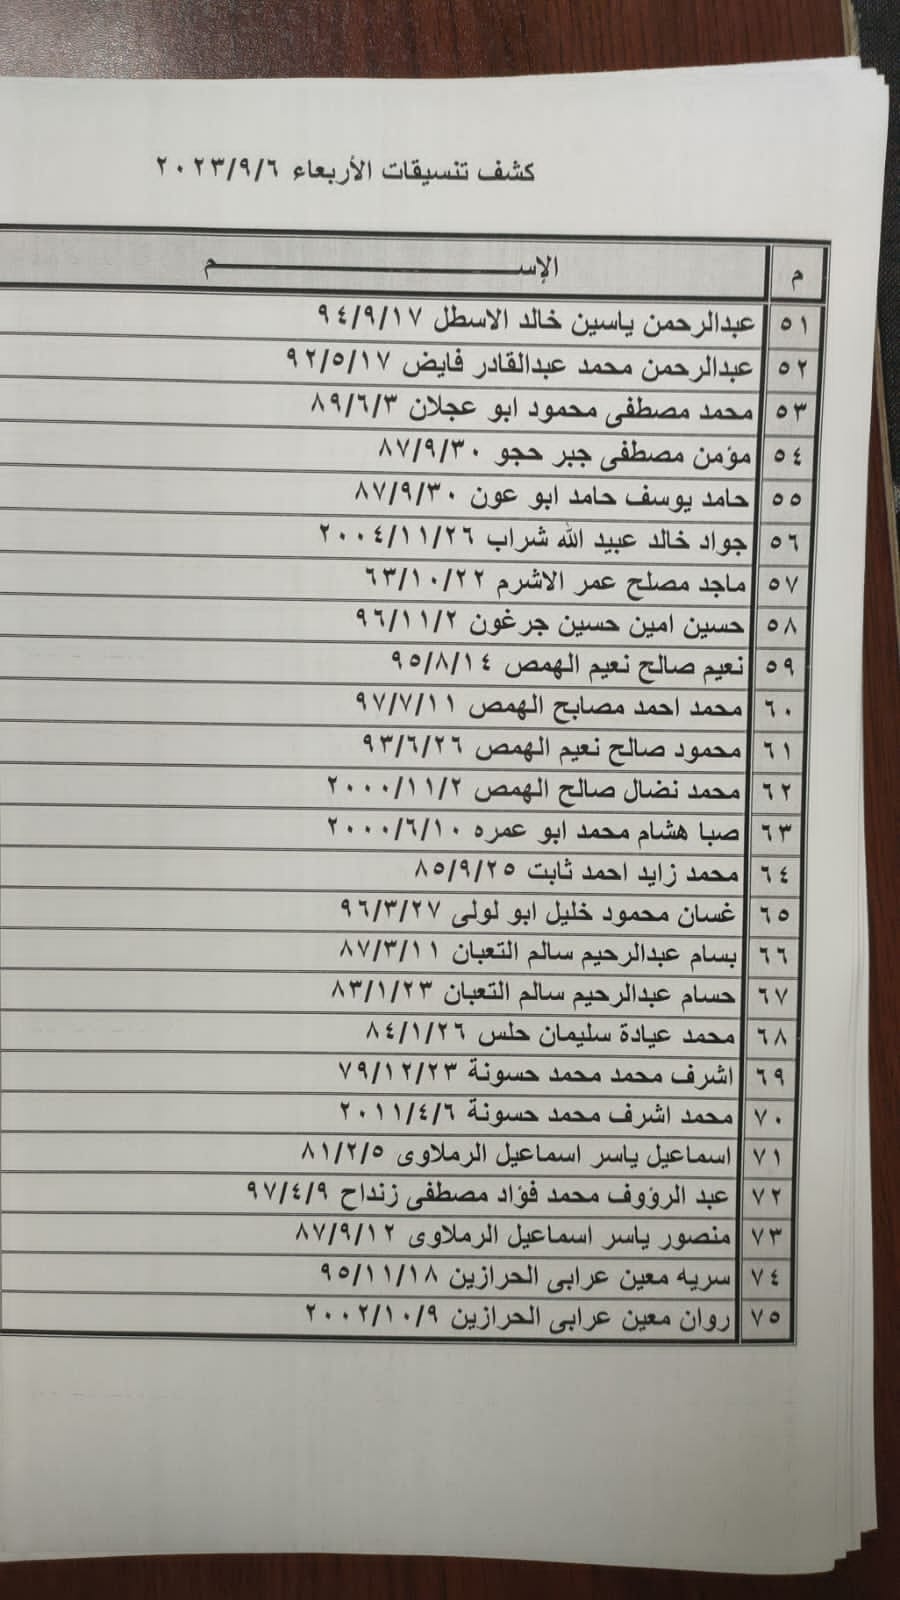 كشف تنسيقات الأربعاء ٢٠٢٣/٩/٦
م الإســـــم
٥١ عبدالرحمن ياسين خالد الاسطل ٩٤/٩/١٧
٥٢ عبدالرحمن محمد عبدالقادر فايض ٩٢/٥/١٧
٥٣ محمد مصطفى محمود ابو عجلان ٨٩/٦/٣
٥٤ مؤمن مصطفى جبر حجو ٨٧/٩/٣٠
٥٥ حامد يوسف حامد ابو عون ٨٧/٩/٣٠
٥٦ جواد خالد عبيد الله شراب ٢٠٠٤/١١/٢٦
٥٧ ماجد مصلح عمر الاشرم ٦٣/١٠/٢٢
٥٨ حسين امين حسين جرغون ٩٦/١١/٢
٥٩ نعيم صالح نعيم الهمص ٩٥/٨/١٤
٦٠ محمد احمد مصابح الهمص ٩٧/٧/١١
٦١ محمود صالح نعيم الهمص ٩٣/٦/٢٦
٦٢ محمد نضال صالح الهمص ٢٠٠٠/١١/٢
٦٣ صبا هشام محمد ابو عمره ٢٠٠٠/٦/١٠
٦٤ محمد زايد احمد ثابت ٨٥/٩/٢٥
٦٥ غسان محمود خليل ابو لولى ٩٦/٣/٢٧
٦٦ بسام عبدالرحيم سالم التعبان ٨٧/٣/١١
٦٧ حسام عبدالرحيم سالم التعبان ٨٣/١/٢٣
٦٨ محمد عيادة سليمان حلس ٨٤/١/٢٦
٦٩ اشرف محمد محمد حسونة ٧٩/١٢/٢٣
٧٠ محمد اشرف محمد حسونة ٢٠١١/٤/٦
٧١ اسماعيل ياسر اسماعيل الرملاوى ٨١/٢/٥
٧٢ عبد الرؤوف محمد فؤاد مصطفى زنداح ٩٧/٤/٩
٧٣ منصور ياسر اسماعيل الرملاوى ٨٧/٩/١٢
٧٤ سريه معين عرابى الحرازين ٩٥/١١/١٨
٧٥ روان معين عرابى الحرازين ٢٠٠٢/١٠/٩